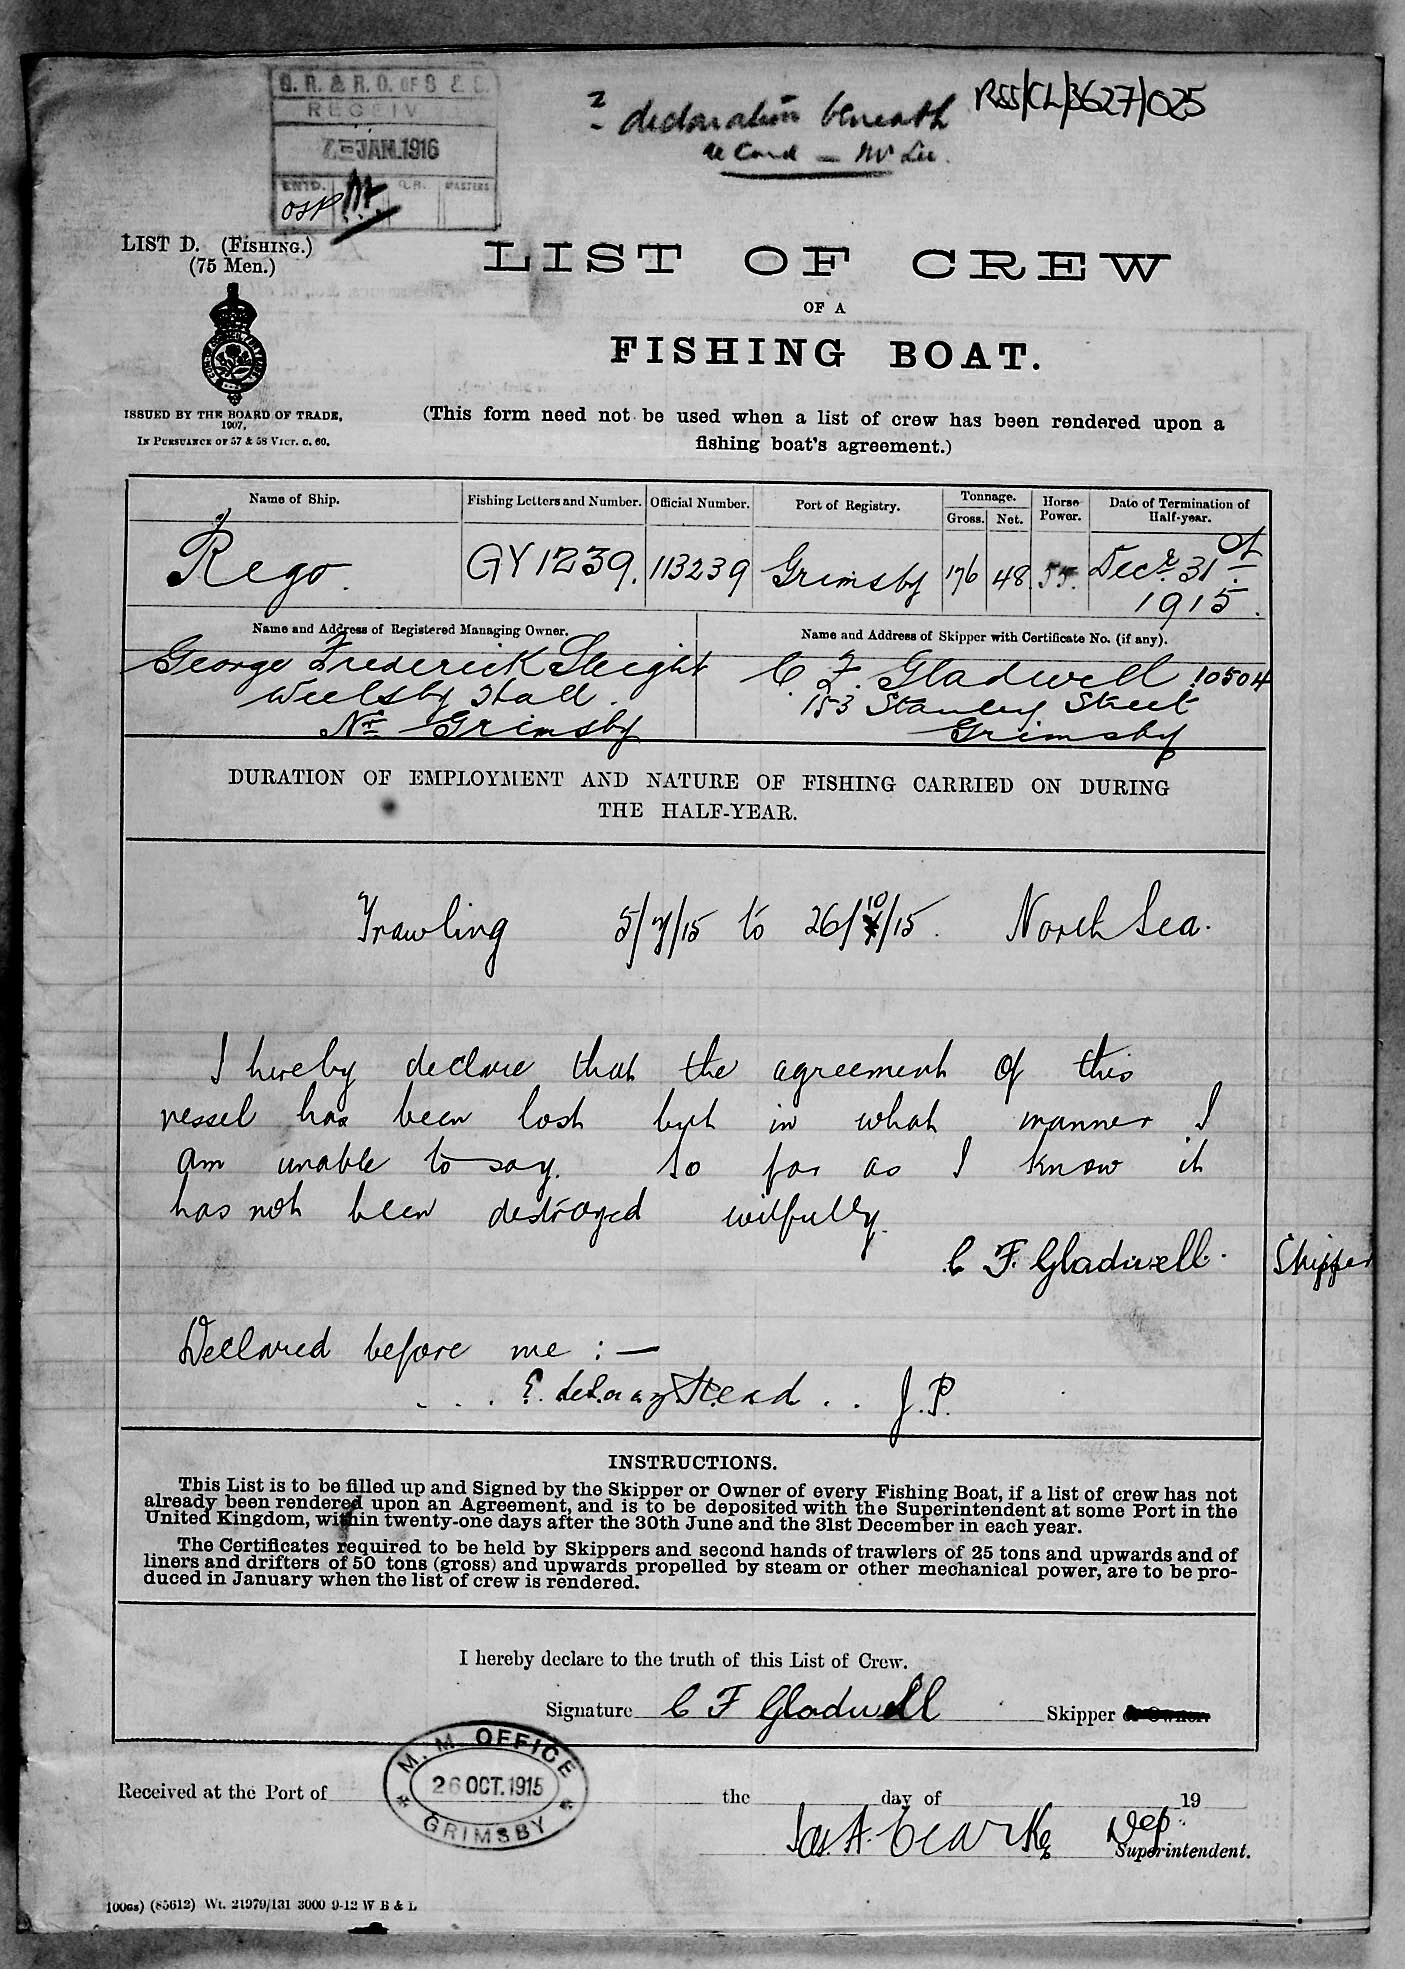 G. R. & R. O. OF S & S.
RECEIV
JAN. 1916
ENTD. MASTERS
OSP
? declaration beneath
RSS/CL/3627/025
LIST D. (FISHING.)
(75 Men.)
ISSUED BY THE BOARD OF TRADE,
1907.
IN PURSUANCE OF 57 & 58 VICT. C. 60.
LIST OF CREW
OF A
FISHING BOAT.
(This form need not be used when a list of crew has been rendered upon a
fishing boat's agreement.)
Name of Ship. Fishing Letters and Number. Official Number. Port of Registry. Tonnage. Gross. Net. Horse Power. Date of Termination of Half-year.
Rego. GY 1239. 113239 Grimsby 176 48 55. Decr. 31st
1915.
Name and Address of Registered Managing Owner. Name and Address of Skipper with Certificate No. (if any).
George Frederick Sleight C. F. Gladwell 10504
Weelsby Hall. 153 Stanley Street
Nr Grimsby Grimsby
DURATION OF EMPLOYMENT AND NATURE OF FISHING CARRIED ON DURING
THE HALF-YEAR.
Trawling 5/7/15 to 26/10/15. North Sea.
I hereby declare that the agreement of this
vessel has been lost but in what manner I
am unable to say. So far as I know it
has not been destroyed wilfully.
C F. Gladwell. Skipper
Declared before me : —
Stead . . J. P.
INSTRUCTIONS.
This List is to be filled up and Signed by the Skipper or Owner of every Fishing Boat, if a list of crew has not
already been rendered upon an Agreement, and is to be deposited with the Superintendent at some Port in the
United Kingdom, within twenty-one days after the 30th June and the 31st December in each year.
The Certificates required to be held by Skippers and second hands of trawlers of 25 tons and upwards and of
liners and drifters of 50 tons (gross) and upwards propelled by steam or other mechanical power, are to be pro-
duced in January when the list of crew is rendered.
I hereby declare to the truth of this List of Crew.
Signature C F Gladwell Skipper or Owner.
Received at the Port of the day of 19
M. M. OFFICE
26 OCT. 1915
GRIMSBY
Jas. A. Dep.
Superintendent.
(85612) Wt. 21979/131 3000 9-12 W B & L